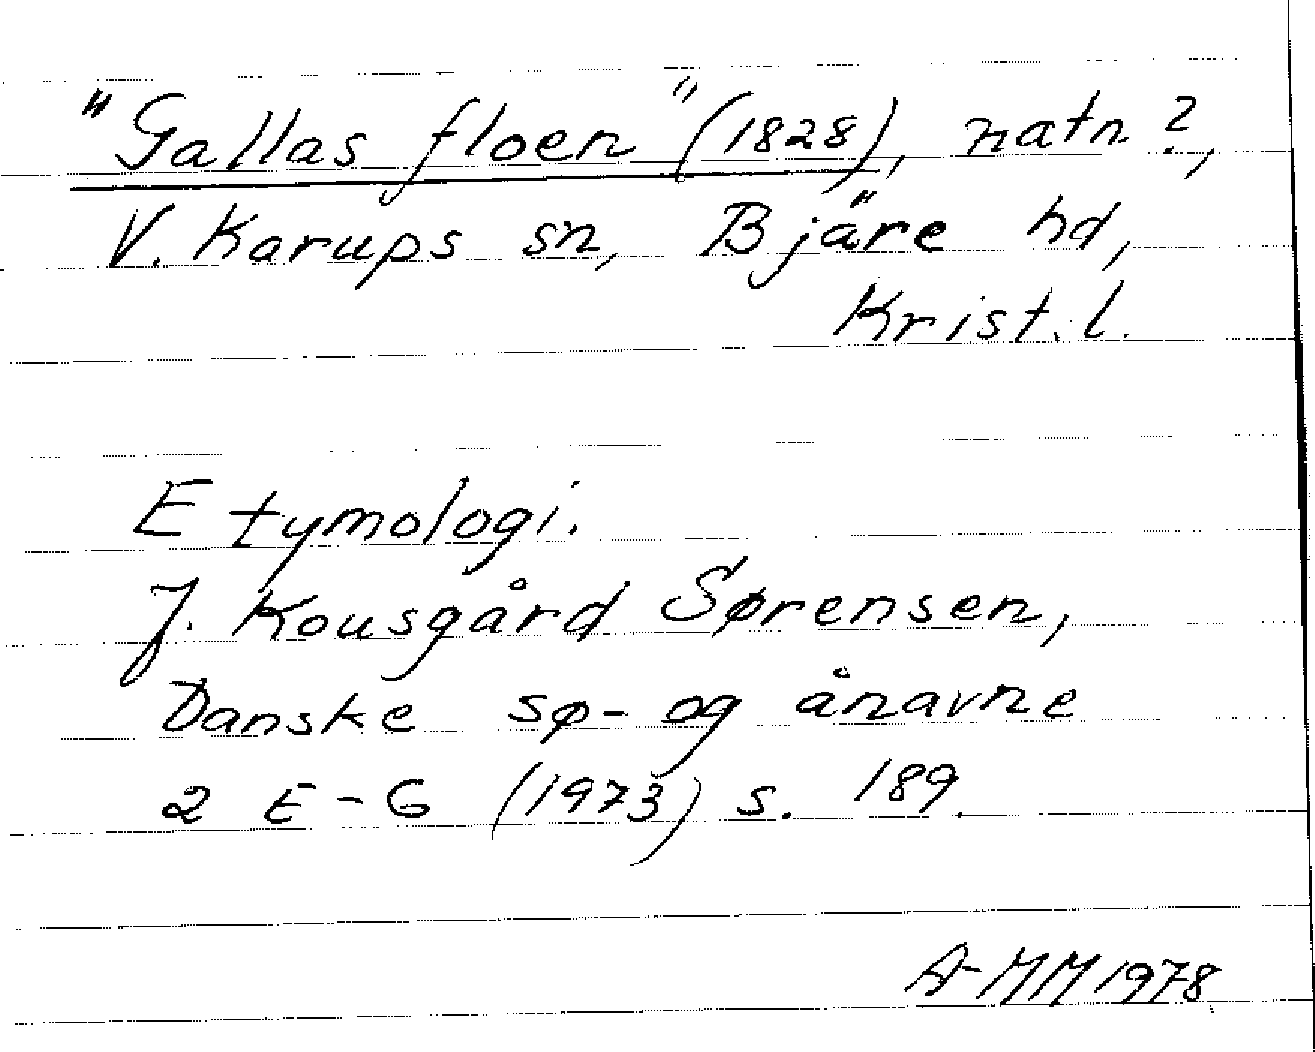 "Gallas floen" (1828), natn?,
V. Karups sn, Bjäre hd,
Krist. l.
Etymologi.
J. Kousgård Sørensen,
Danske sø- og ånavne
2 E-G (1973) s. 189.
A-MM 1978